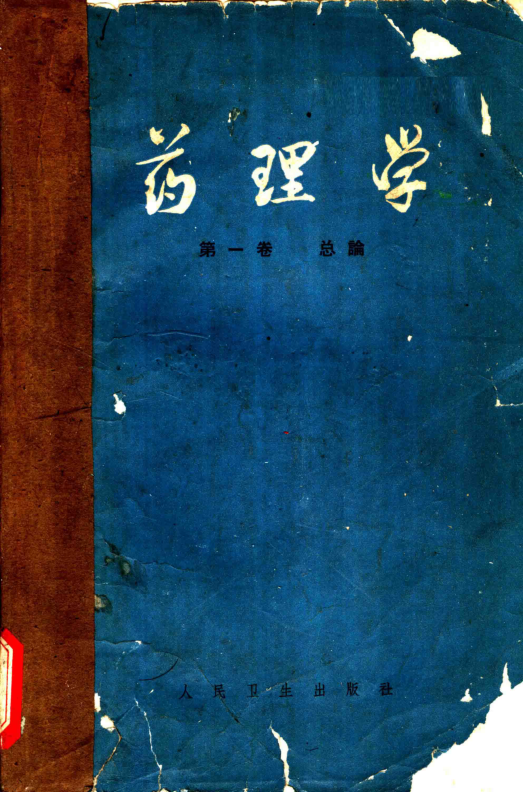 药理学
第一卷 总論
人民卫生出版社